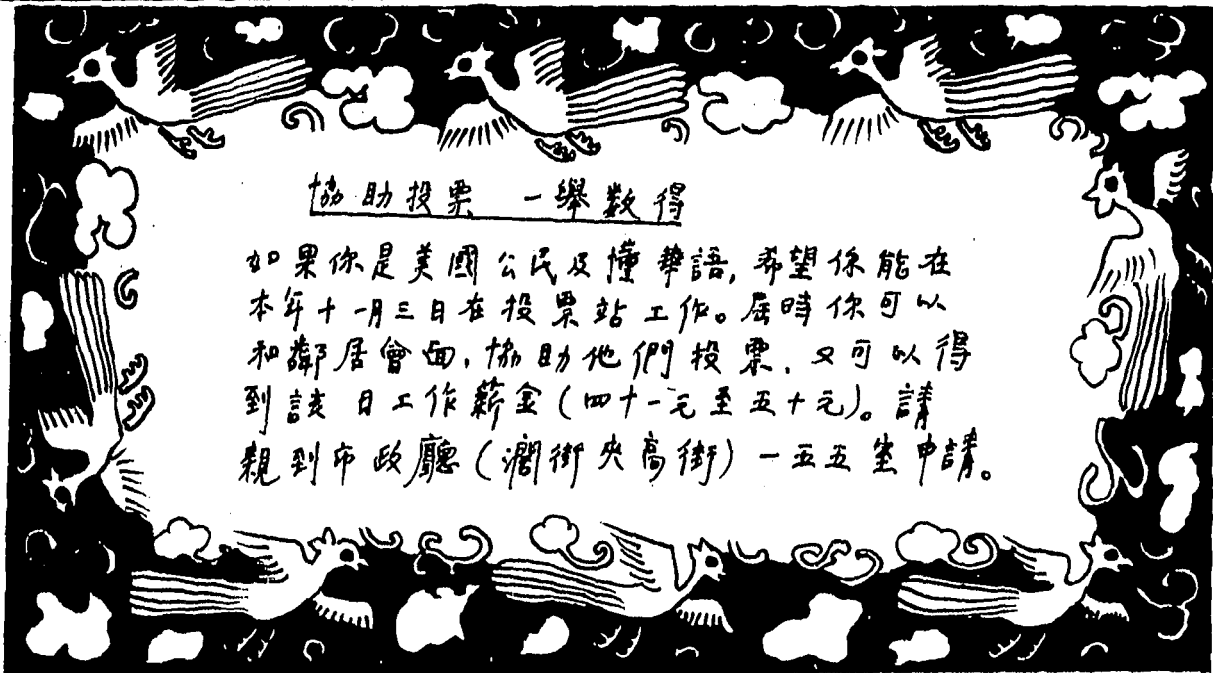 協助投票 一舉數得
如果你是美國公民及懂華語，希望你能在
本年十一月三日在投票站工作。屆時你可以
和鄰居會面，協助他們投票，又可以得
到該日工作薪金（四十一元至五十元）。請
親到市政廳（街夾高街）一五五室申請。